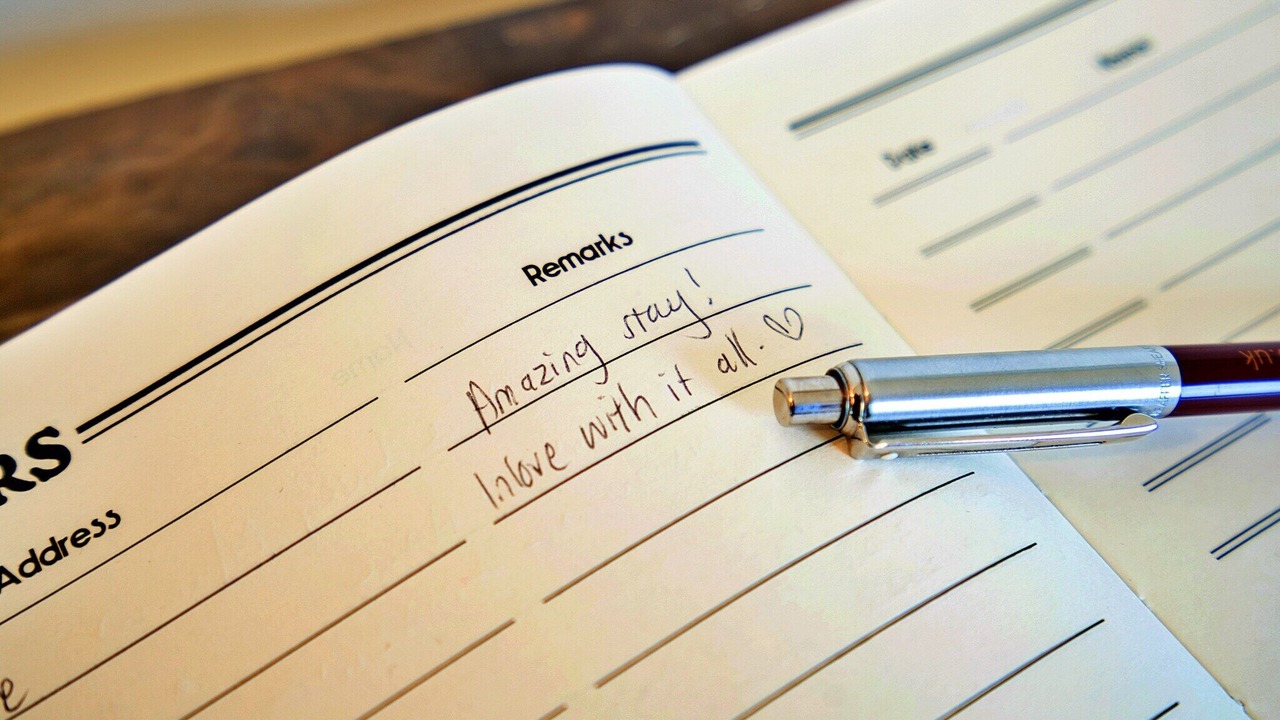 RS
Address
Remarks
Amazing stay!
Inlove with it all. ♡
e
Date
Name
UK